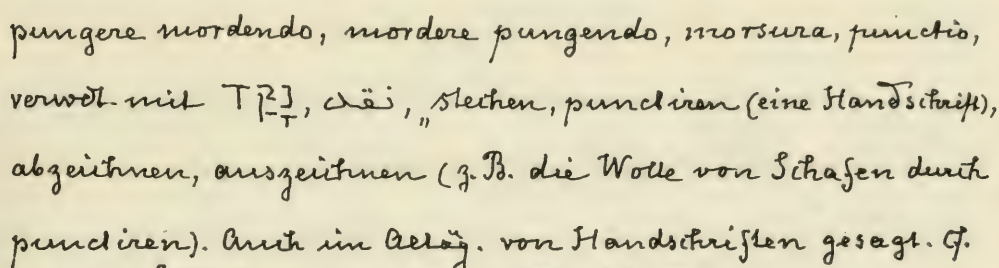 pungere mordendo, mordere pungendo, morsura, punctio,
verwdt. mit „stechen, punctiren (eine Handschrift),
abzeichnen, auszeichnen (z. B. die Wolle von Schafen durch
punctiren). Auch im Altäg. von Handschriften gesagt. Cf.